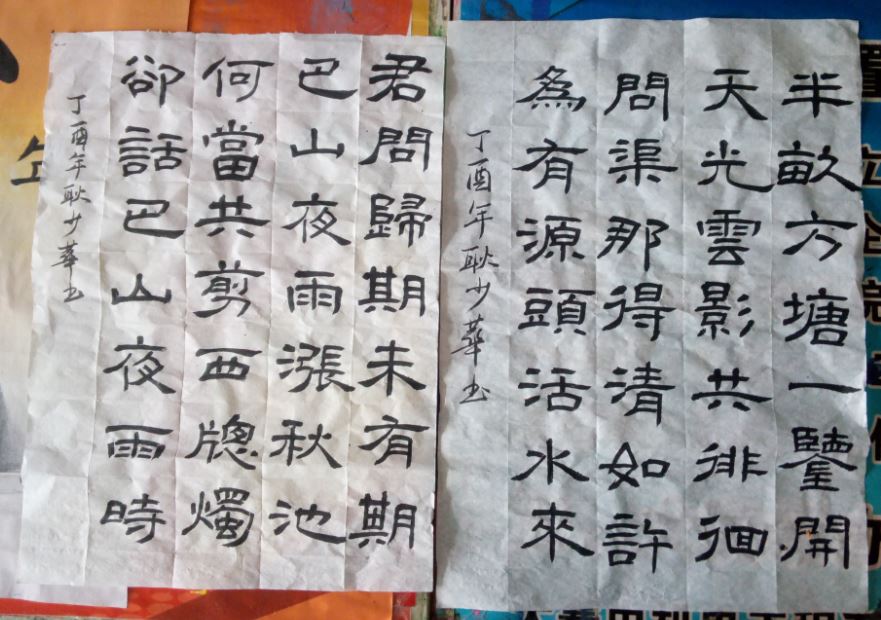 半畝方塘一鑒開
天光雲影共徘徊
問渠那得清如許
為有源頭活水來
丁酉年耿少華书
君問歸期未有期
巴山夜雨漲秋池
何當共剪西牕燭
卻話巴山夜雨時
丁酉年耿少華书